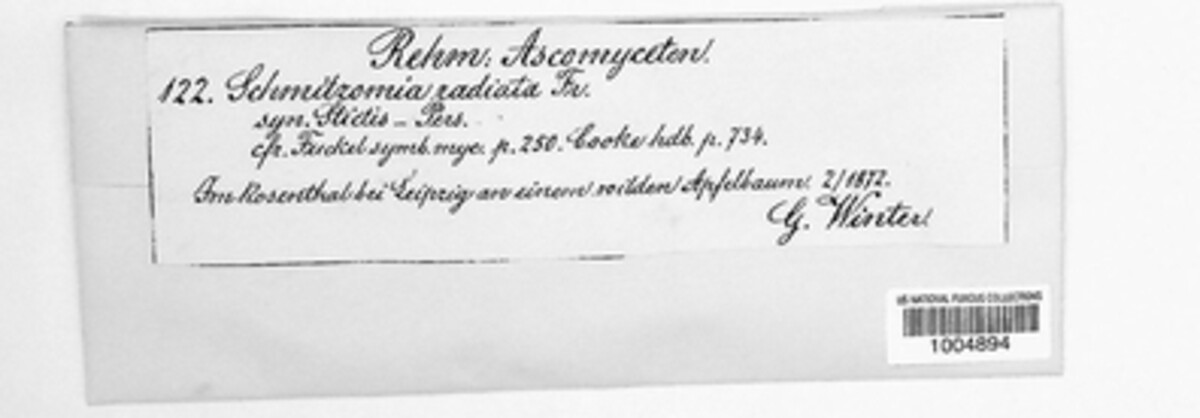 Rehm: Ascomyceten.
122. Schmitzomia radiata Fr.
syn. Stictis – Pers.
cfr. Fuckel symb. myc. p. 250. Cooke hdb. p. 734.
Im Rosenthal bei Leipzig an einem wilden Apfelbaum. 2/1872.
G. Winter.
US NATIONAL FUNGUS COLLECTIONS
1004894